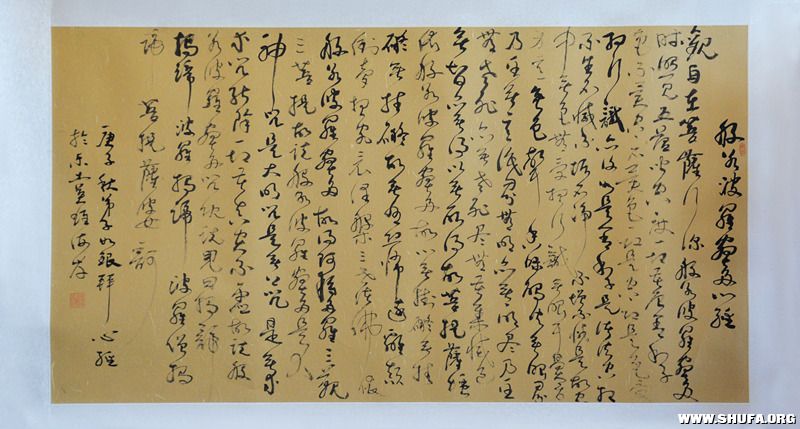 般若波羅蜜多心經
觀自在菩薩行深般若波羅蜜多
時照見五蘊皆空度一切苦厄舍利子
色不異空空不異色色即是空空即是色受
想行識亦復如是舍利子是諸法空相
不生不滅不垢不淨不增不減是故空
中無色無受想行識無眼耳鼻舌
身意無色聲香味觸法無眼界
乃至無意識界無無明亦無無明盡乃至
無老死亦無老死盡無苦集滅道
無智亦無得以無所得故菩提薩埵
依般若波羅蜜多故心無罣礙無罣
礙故無有恐怖遠離顛
倒夢想究竟涅槃三世諸佛依
般若波羅蜜多故得阿耨多羅三藐
三菩提故知般若波羅蜜多是大
神咒是大明咒是無上咒是無等
等咒能除一切苦真實不虛故說般
若波羅蜜多咒即說咒曰揭諦
揭諦波羅揭諦 波羅僧揭
諦 菩提薩婆訶
庚子秋弟子拜心經
於
WWW.SHUFA.ORG